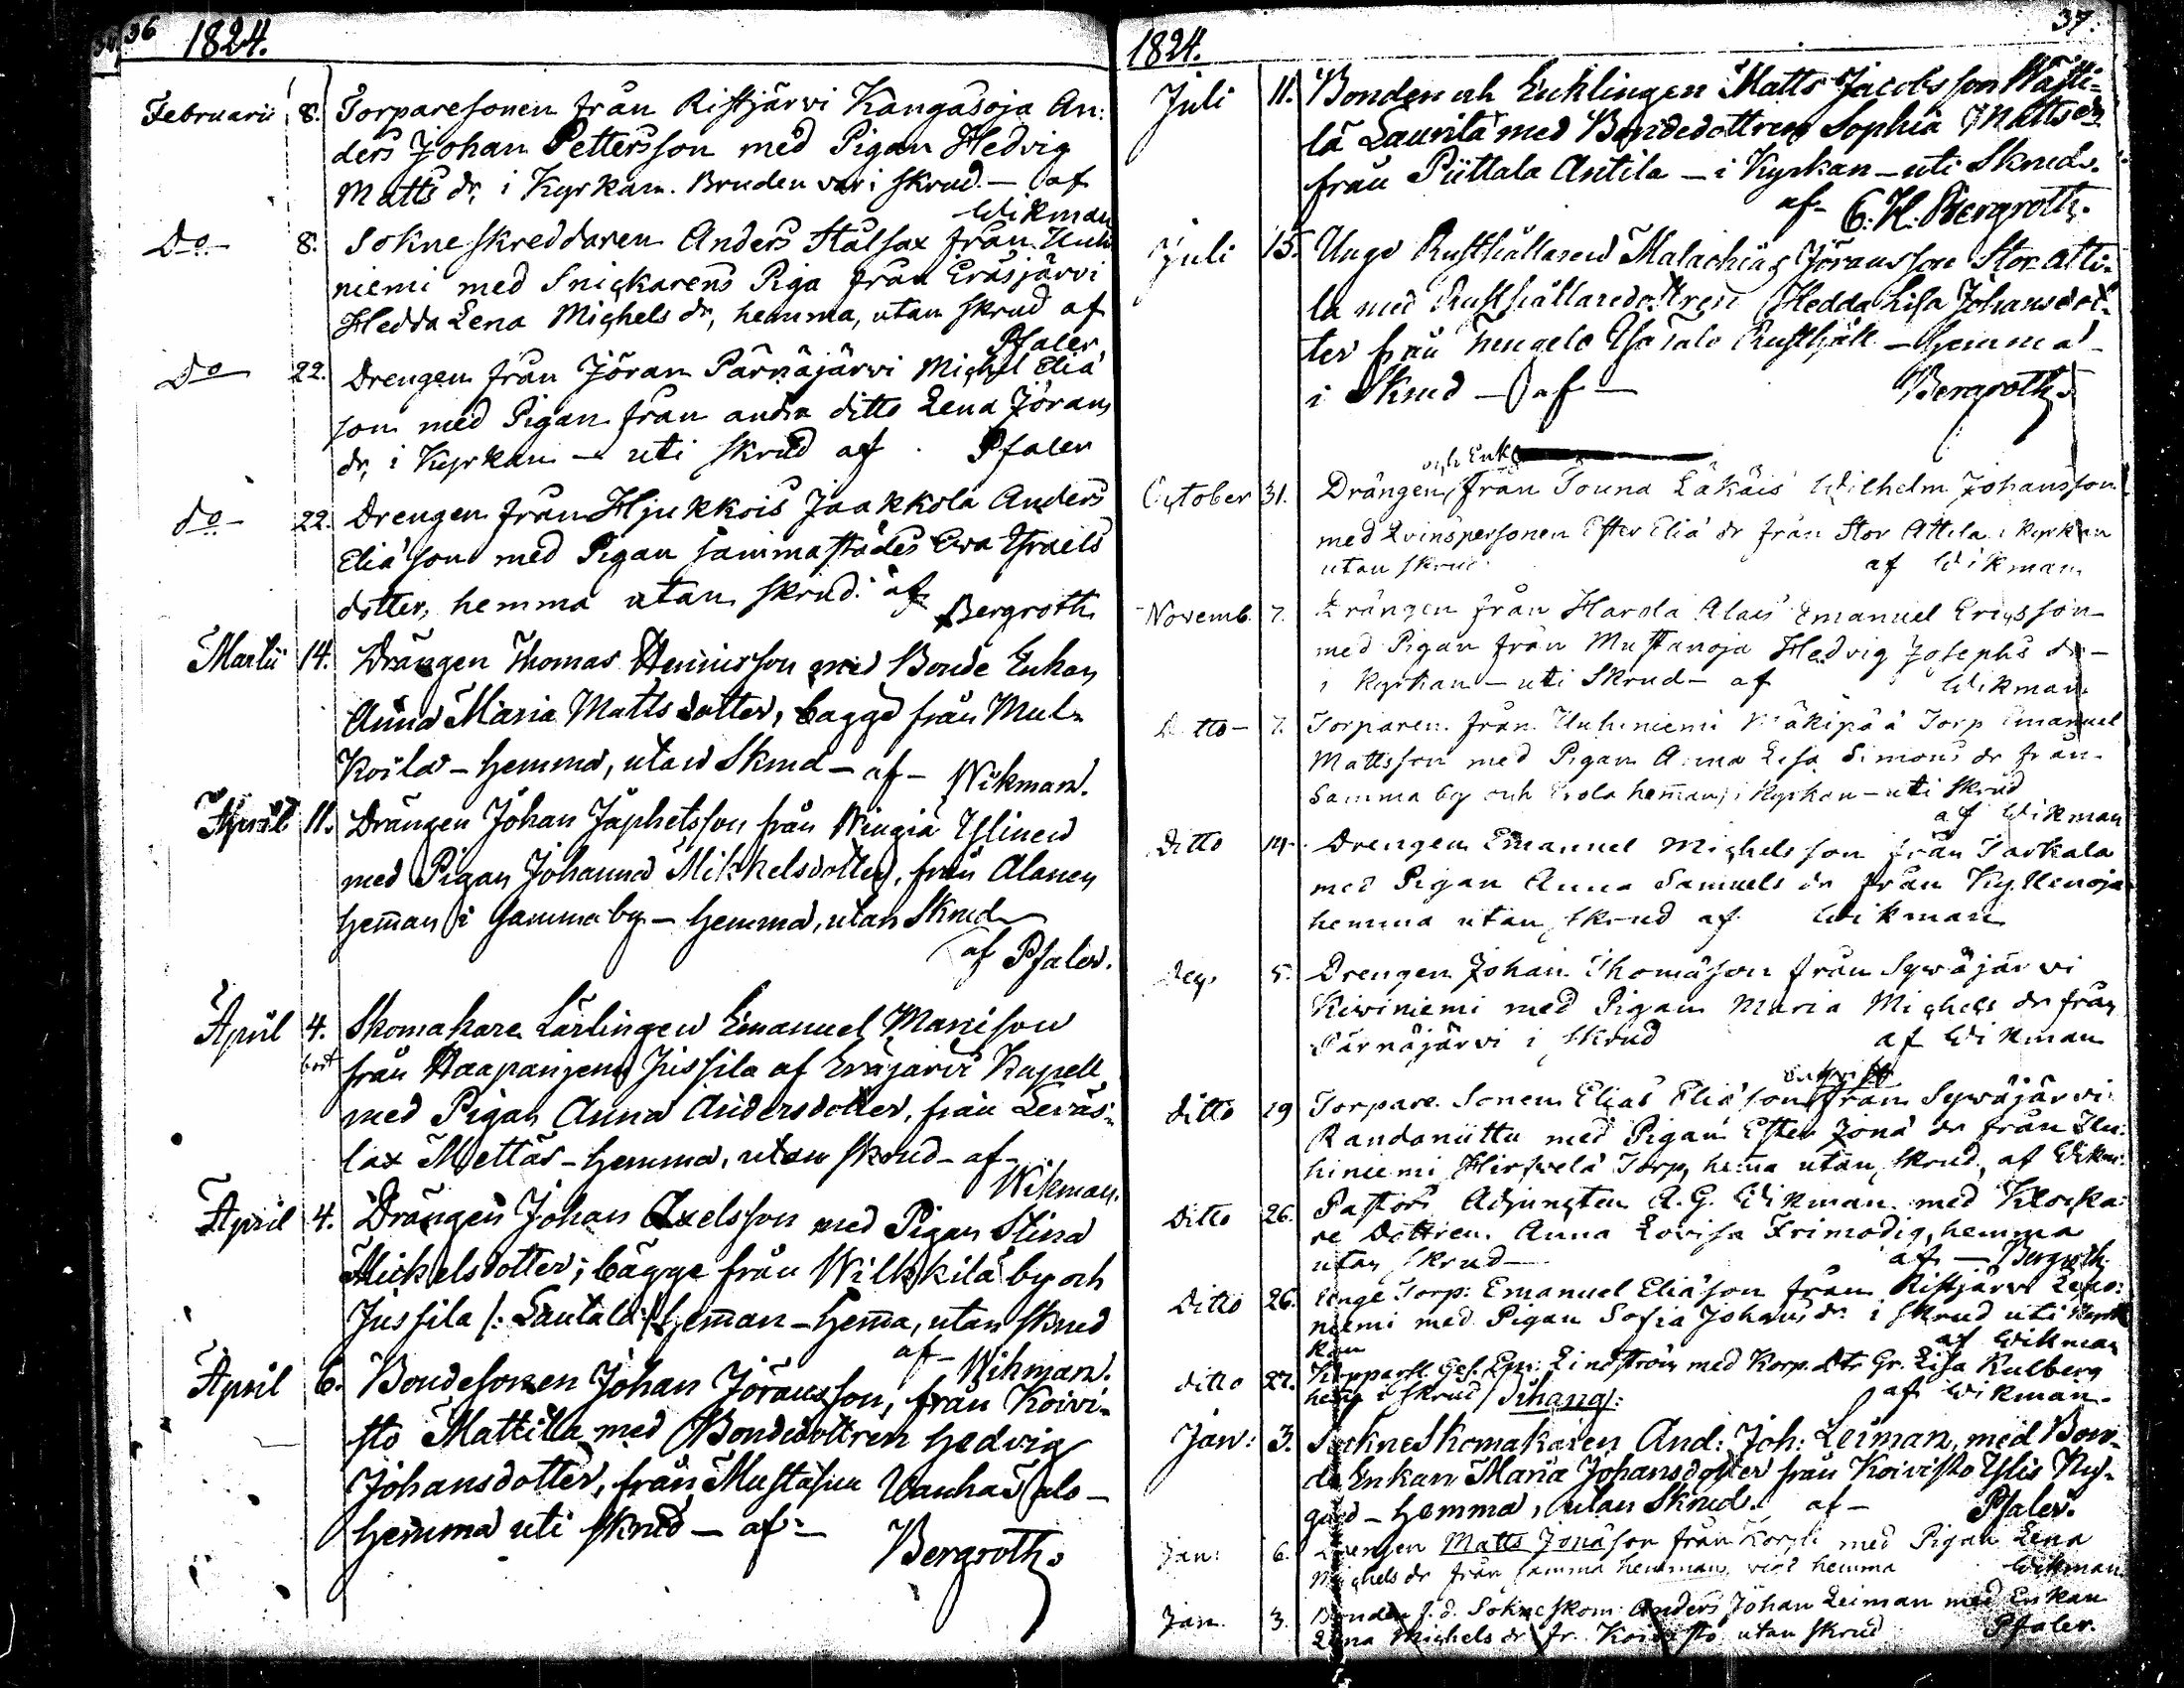 36 1824.
Februarii 8. Torparesonen från Ristjärvi Kangasoja An:
ders Johan Pettersson med Pigan Hedvig
Matts dr, i Kyrkan. Bruden var i skrud — af
Wikman
Do 8. Sokneskreddaren Anders Stålsax från Uuh
niemi med Snickarens Piga från Eräsjärvi
Hedda Lena Michels dr, hemma, utan skrud af
Pfaler
Do 22. Drengen från Jöran Pärnäjärvi Michel Eliä
son med Pigan från andra ditto Lena Jörans
dr, i Kyrkan — uti skrud af Pfaler
do 22. Drengen från Hjukkois Jaakkola Anders
Eliäson med Pigan sammastädes Eva Israels
dotter, hemma utan skrud. af
Bergroth
Martii 14. Drängen Thomas Henrisson med Bonde Enkan
Anna Maria Mattsdotter, bagge från Mul-
Koila - hemma, utan Skrud - af - Wikman.
April 11. Drängen Johan Japhetsson från Wingiä Ylinen
med Pigan Johanna Mikkelsdotter, från Alanen
heman i samma by - hemma, utan Skrud
af Pfaler.
April 4. Skomakare Lärlingen Emanuel Manison
från Haapanjemi Jussila af Eräjärvi Kapell
med Pigan Anna Andersdotter, från Leväs-
lax Mettäs - hemma, utan skrud - af -
Wikman.
April 4. Drängen Johan Axelsson med Pigan Stina
Mickelsdotter; bägge från Wilkkilä by och
Jussila /: Lautala :/ heman - hema, utan skrud
af - Wikman.
April 6. Bondesonen Johan Jöransson, från Koivi-
sto Mattilla med Bondedottren Hedvig
Johansdotter, från Mustasuu Vanhatalo -
hemma uti skrud - af -
Bergroth.
1824. 37.
Juli 11. Bonden och Enklingen Matts Jacobsson
la Laurila med Bondedottren Sophia Mattsdr
från Piittala Antila - i Kyrkan - uti Skrud.
af - C. H. Bergroth.
Juli 15. Unge Rusthållaren Malachias Jöransson Stor Atti-
la med Rusthållaredottren Hedda Lisa Johansdot-
ter från Isotalo Rusthåll - hemma -
i Skrud - af - Bergroth
och Enkl
October 31. Drängen, från Touna Läkäis Wilhelm Johansson
med Qvinspersonen Ester Eliä dr från Stor Attila i kyrkan
utan skrud. af Wikman
Novemb. 7. Drängen från Harola Alais Emanuel Ericsson
med Pigan från Mustanoja Hedvig Josephs dr -
i Kyrkan - uti Skrud - af Wikman
Ditto - 7. Torparen från Uuhniemi Mäkipää Torp Emanuel
Mattsson med Pigan Anna Lisa Simons dr från
Samma by och Erola heman, i Kyrkan - uti skrud
af Wikman
Ditto 14. Drengen Emanuel Michelsson från Tarkala
med Pigan Anna Samuels dr från Kyllenoja
hemma utan skrud af Wikman
Dec. 5. Drengen Johan Thomäson från Sywäjärvi
Kiviniemi med Pigan Maria Michels dr från
Pärnäjärvi i skrud af Wikman
ditto 19 Torpare Sonen Elias Eliäson från Sywäjärvi
Randaniittu med Pigan Ester Jonä dr från Uu-
hiniemi Hirswelä Torp, hema utan skrud, af Wikm:
Ditto 26. Pastors Adjuncten A. G. Wikman med Klocka-
re Dottren Anna Lovisa Frimodig, hemma
utan skrud — af — Bergroth
Ditto 26. Unge Torp: Emanuel Eliäson från Ristjärvi
niemi med Pigan Sofia Johans dr i skrud uti kyr
kan af Wikman
ditto 27. Ges. Em: Lindström med Korp. Dtr Gr. Lisa Kulberg
hema i skrud af Wikman.
Jan: 3. Sockne Skomakaren And: Joh: Leiman, med Bon-
de Enkan Maria Johansdotter från Koivisto Ylis Ny-
gård - hemma, utan Skrud. af - Pfaler.
Jan: 6. Drengen Matts Jonäson från Korpi med Pigan Lena
Michels dr från samma hemman, hemma Wikman
Jan. 3. Bonden f.d. Sokneskom: Anders Johan Leiman med Enkan
Michels dr fr. Koivisto utan skrud Pfaler.